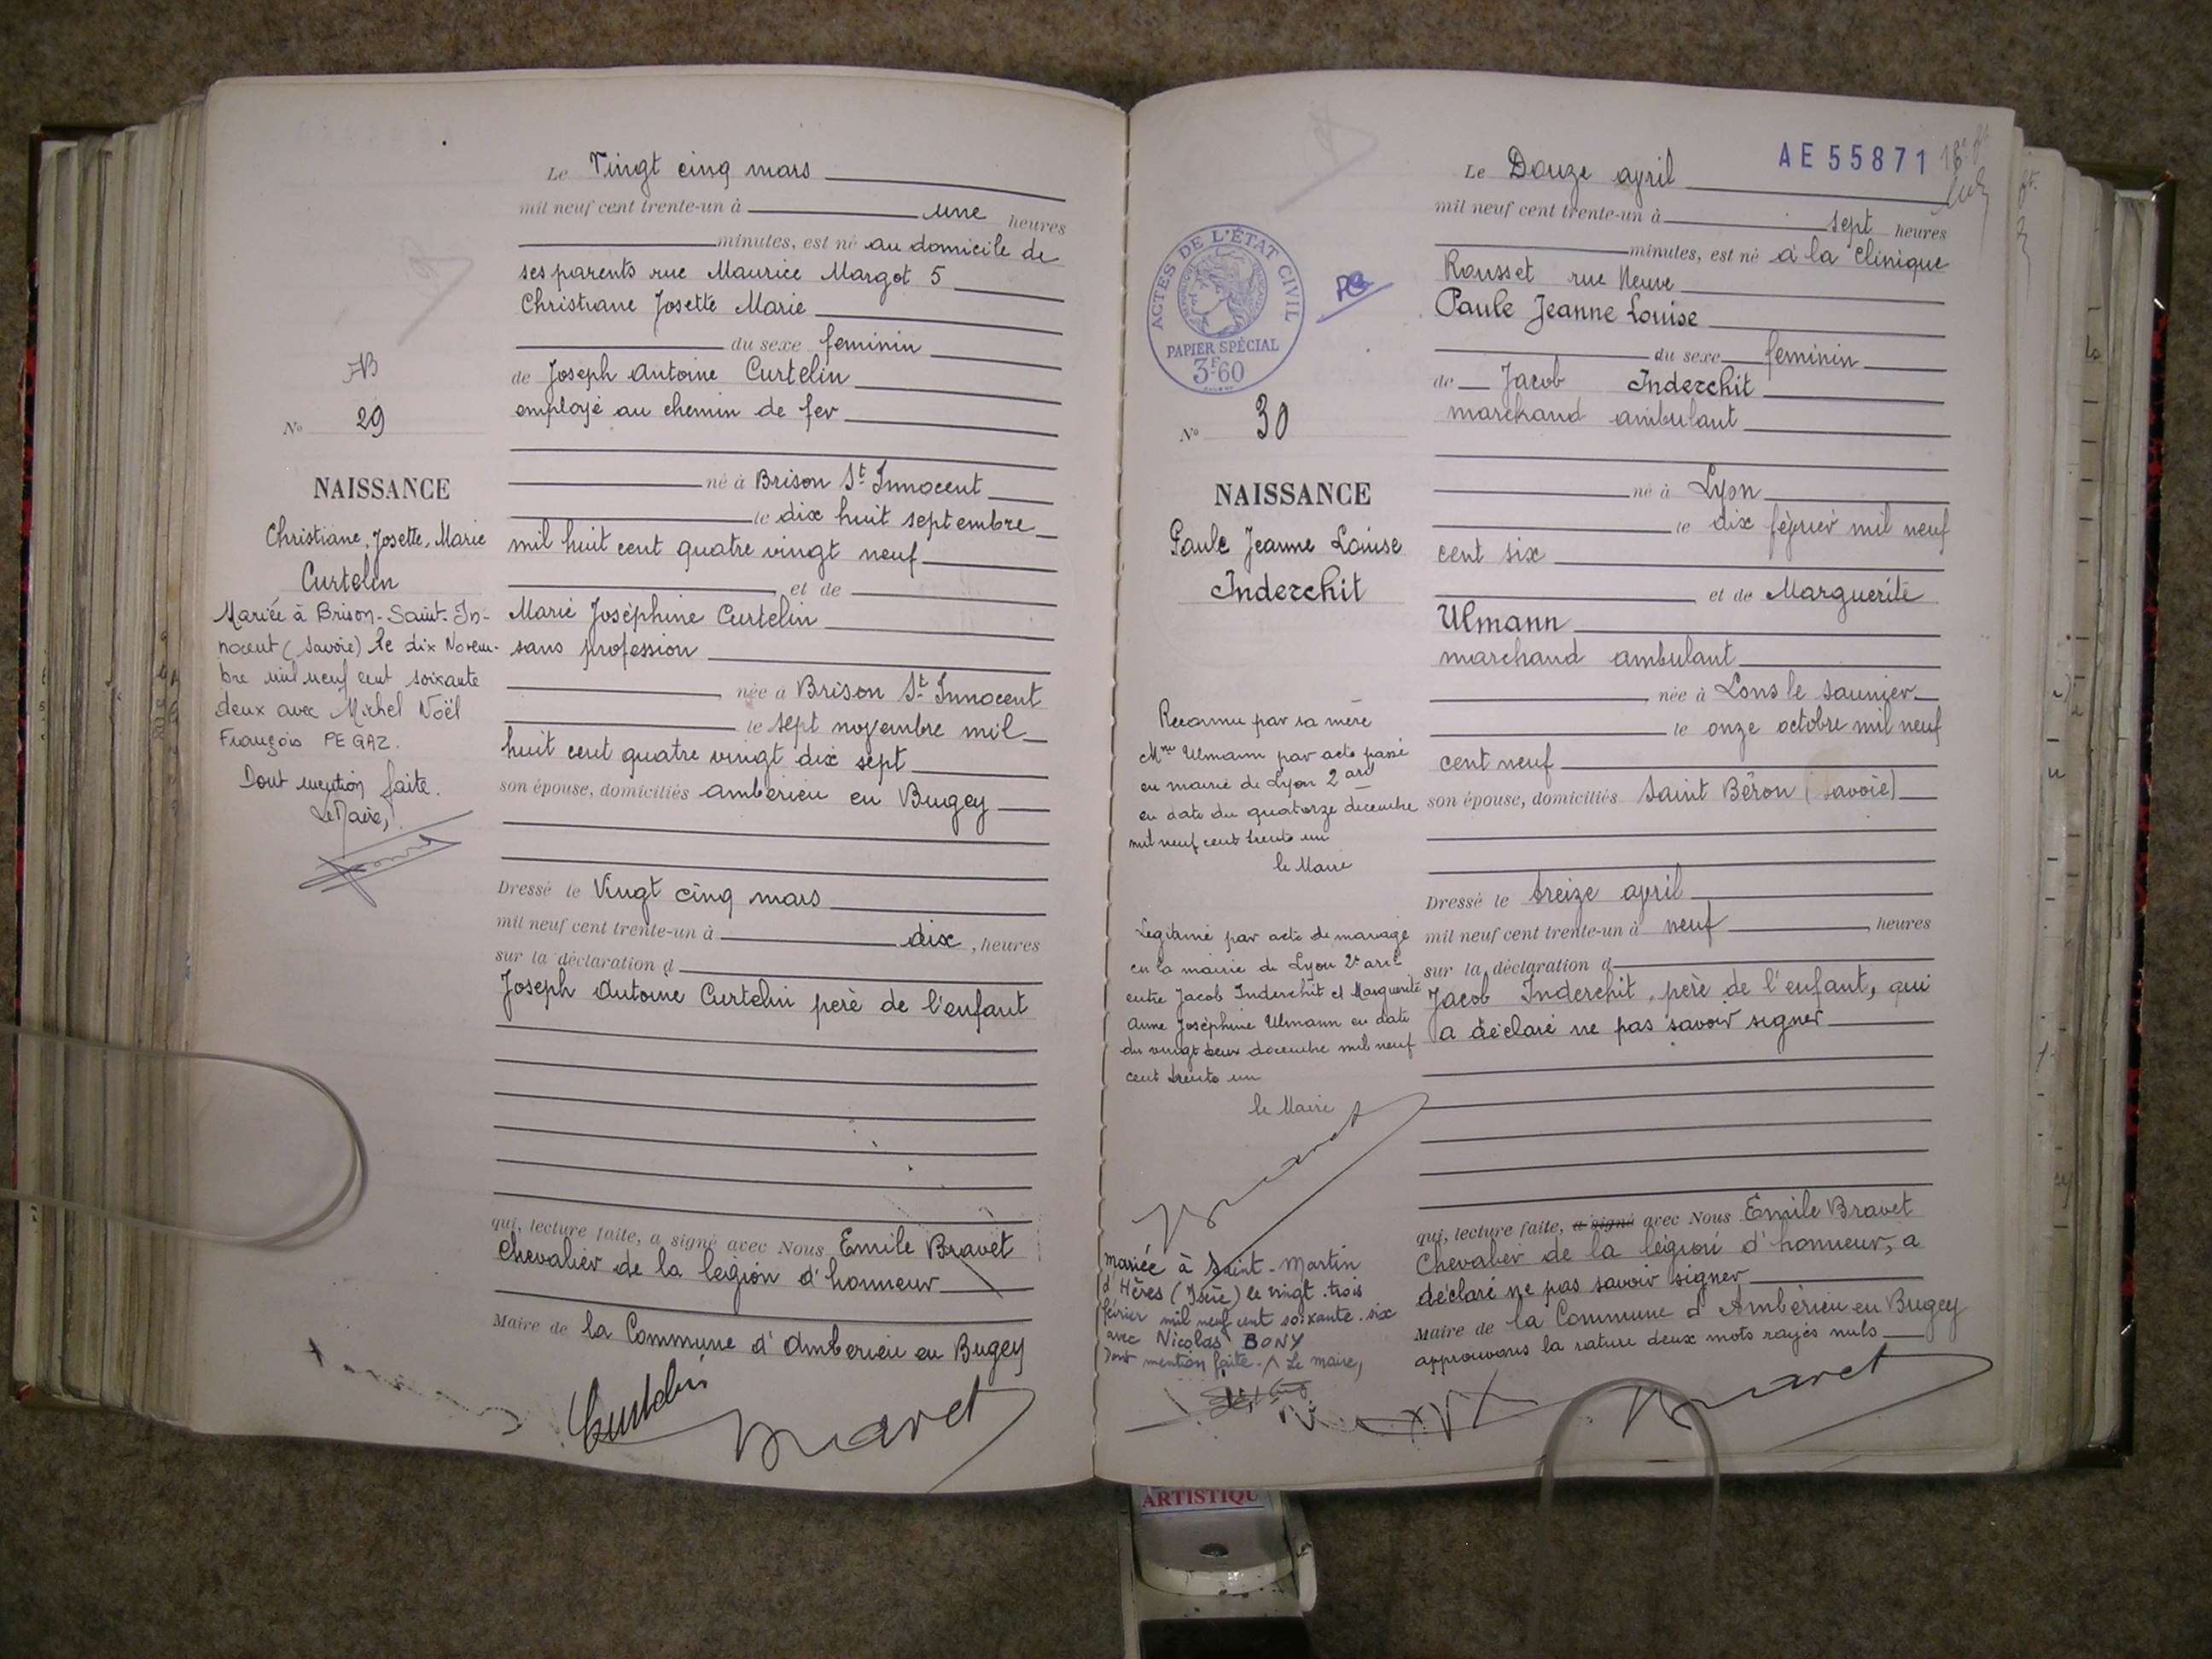 Le Vingt cinq mars
mil neuf cent trente-un à une heures
minutes, est né au domicile de
ses parents rue Maurice Margot 5
Christiane Josette Marie
du sexe feminin
de Joseph Antoine Curtelin
employé au chemin de fer
né à Brison St Innocent
le dix huit septembre
mil huit cent quatre vingt neuf
et de
Marie Joséphine Curtelin
sans profession
née à Brison St Innocent
le sept novembre mil
huit cent quatre vingt dix sept
son épouse, domiciliés Ambérieu en Bugey
Dressé le Vingt cinq mars
mil neuf cent trente-un à dix, heures
sur la déclaration d
Joseph Antoine Curtelin père de l'enfant
qui, lecture faite, a signé avec Nous Emile Bravet
Chevalier de la légion d'honneur
Maire de la Commune d'Ambérieu en Bugey
Curtelin
Bravet
No 29
NAISSANCE
Christiane, Josette, Marie
Curtelin
Mariée à Brison-Saint-In-
nocent (Savoie) le dix Novem-
bre mil neuf cent soixante
deux avec Michel Noël
François PEGAZ.
Dont mention faite.
Le Maire,
AE55871
ACTES DE L'ÉTAT CIVIL
PAPIER SPÉCIAL
3F60
No 30
NAISSANCE
Paule Jeanne Louise
Inderchit
Reconnu par sa mère
Mme Ulmann par acte passé
en mairie de Lyon 2 ard
en date du quatorze décembre
mil neuf cent trente un
le Maire
Legitimé par acte de mariage
en la mairie de Lyon 2e arr
entre Jacob Inderchit et Marguerite
Anne Joséphine Ulmann en date
du vingt deux décembre mil neuf
cent trente un
le Maire
Bravet
Mariée à Saint-Martin
d'Hères (Isère) le vingt-trois
février mil neuf cent soixante-six
avec Nicolas BONY
Dont mention faite. Le maire,
Le Douze avril
mil neuf cent trente-un à sept heures
minutes, est né à la Clinique
Rousset rue Neuve
Paule Jeanne Louise
du sexe feminin
de Jacob Inderchit
marchand ambulant
né à Lyon
le dix février mil neuf
cent six
et de Marguerite
Ulmann
marchand ambulant
née à Lons le Saunier
le onze octobre mil neuf
cent neuf
son épouse, domiciliés Saint Béron (Savoie)
Dressé le treize avril
mil neuf cent trente-un à neuf, heures
sur la déclaration d
Jacob Inderchit, père de l'enfant, qui
a déclaré ne pas savoir signer
qui, lecture faite, a signé avec Nous Emile Bravet
Chevalier de la légion d'honneur, a
déclaré ne pas savoir signer
Maire de la Commune d'Ambérieu en Bugey
approuvons la rature deux mots rayés nuls
Bravet
ARTISTIQU